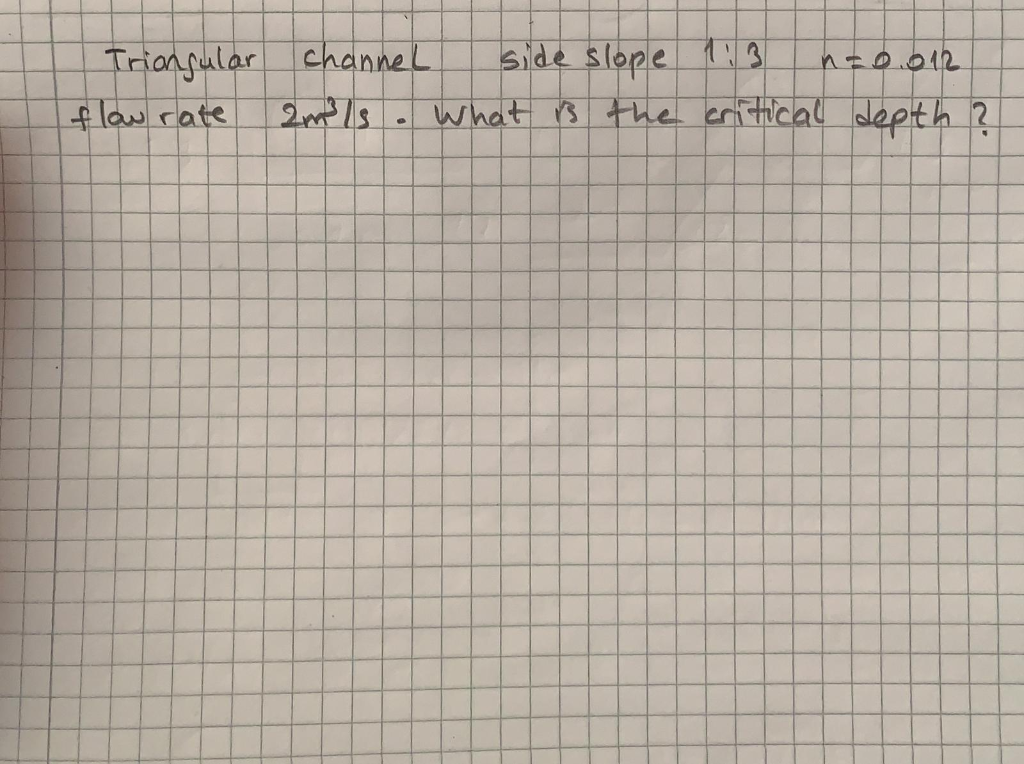 Triangular channel side slope 1:3 n=0.012
flow rate 2m³/s. What is the critical depth?